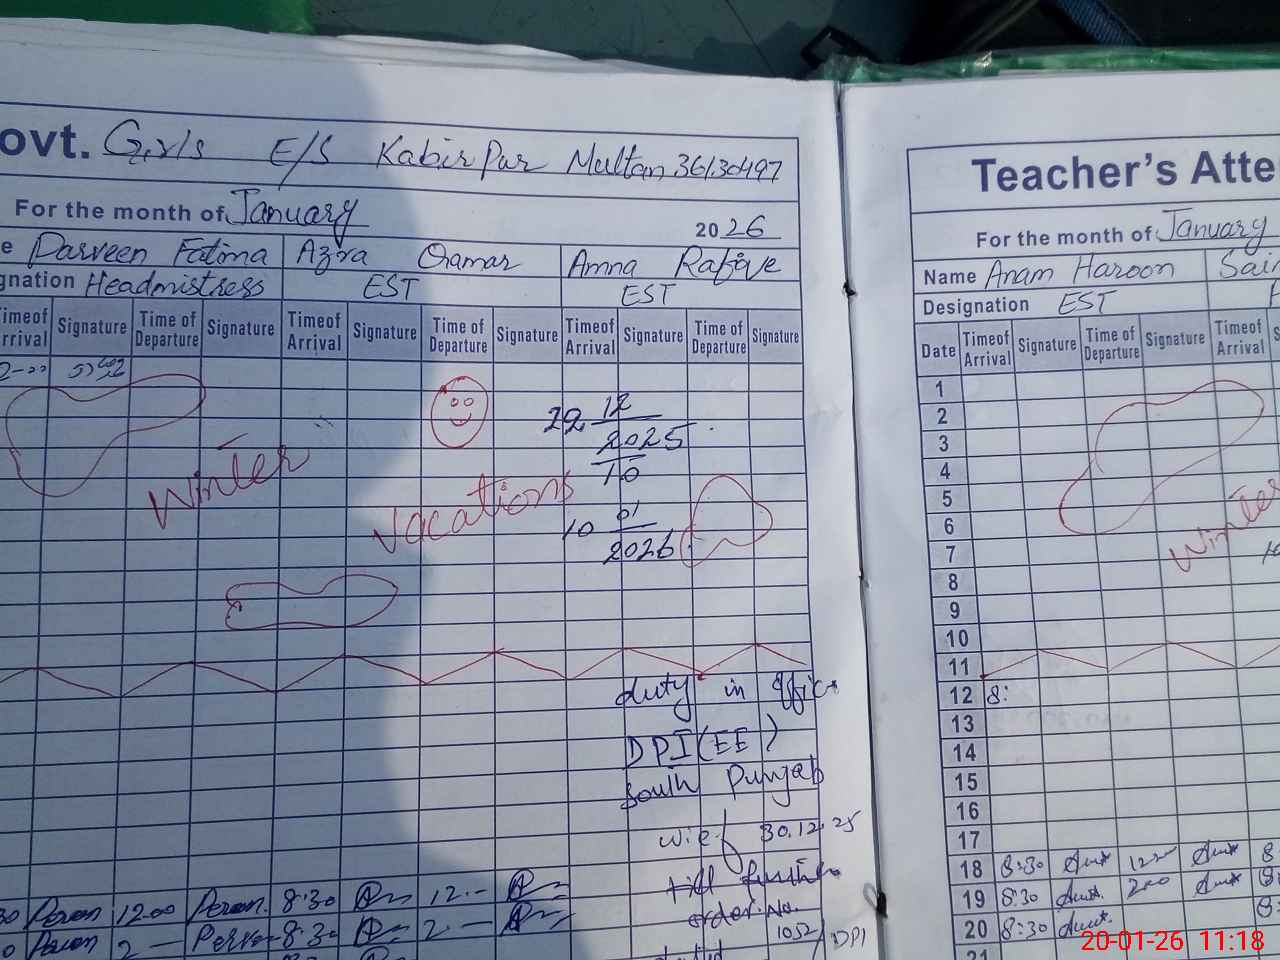 ovt. Girls E/S Kabir Pur Multan 36130497
For the month of January 2026
e Parveen Fatima Azra Qamar Amna Rafique
gnation Headmistress EST EST
Timeof Arrival Signature Time of Departure Signature Timeof Arrival Signature Time of Departure Signature Timeof Arrival Signature Time of Departure Signature
Winter Vacations
29 12 2025
to
10 01 2026
duty in office
DPI (EE)
South Punjab
w.e.f 30.12.25
till further
order. No.
1052/DPI
30 Perven 12.00 Perven. 8:30 12.-
0 Perven 2 - Perven 8:30 2 -
Teacher's Atte
For the month of January
Name Anam Haroon Sai
Designation EST
Date Timeof Arrival Signature Time of Departure Signature Timeof Arrival
1
2
3
4
5
6
7
Winter
8
9
10
11
12 8:
13
14
15
16
17
18 8:30 8
19 8:30 200
20 8:30
21
20-01-26 11:18